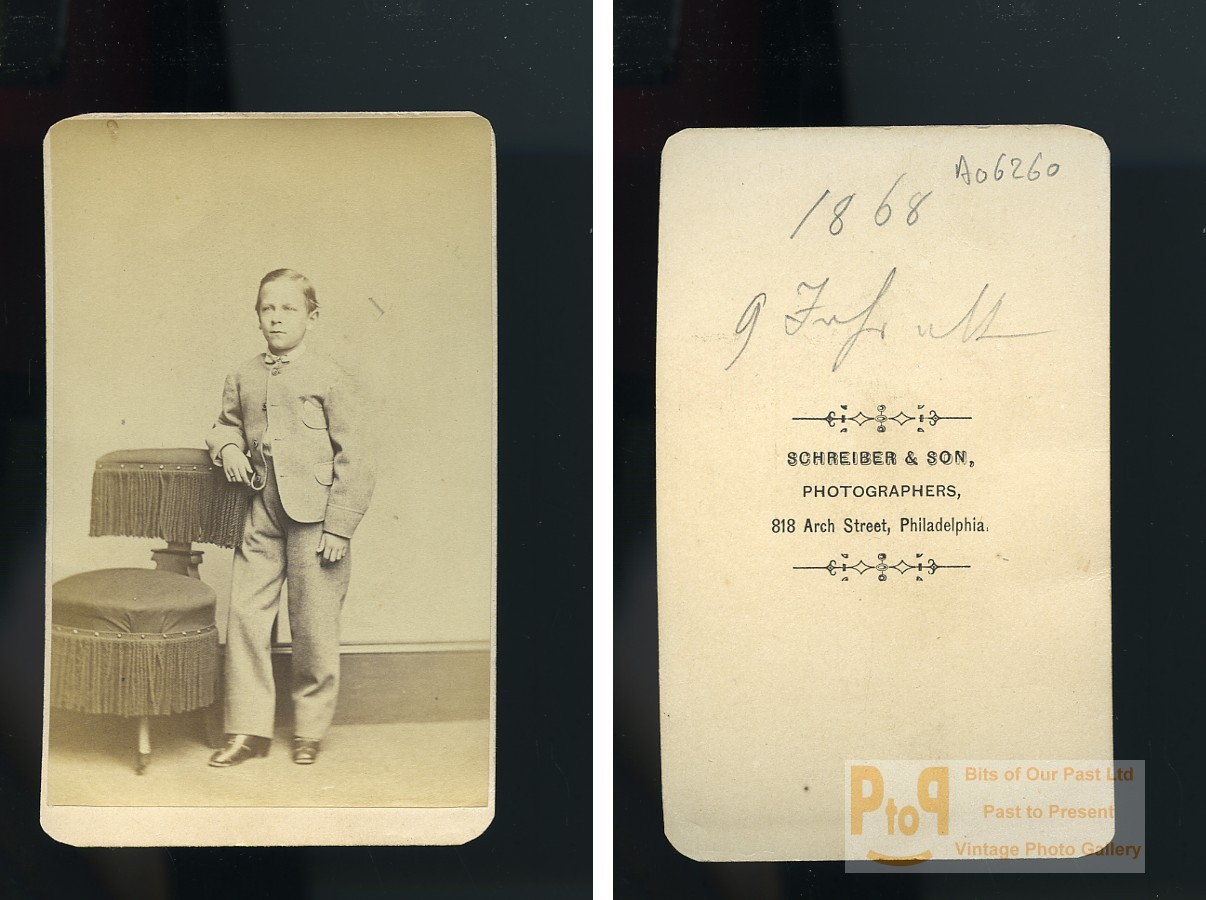 A06260
1868
9 Jahr alt
SCHREIBER & SON,
PHOTOGRAPHERS,
818 Arch Street, Philadelphia.
PtoP
Bits of Our Past Ltd
Past to Present
Vintage Photo Gallery